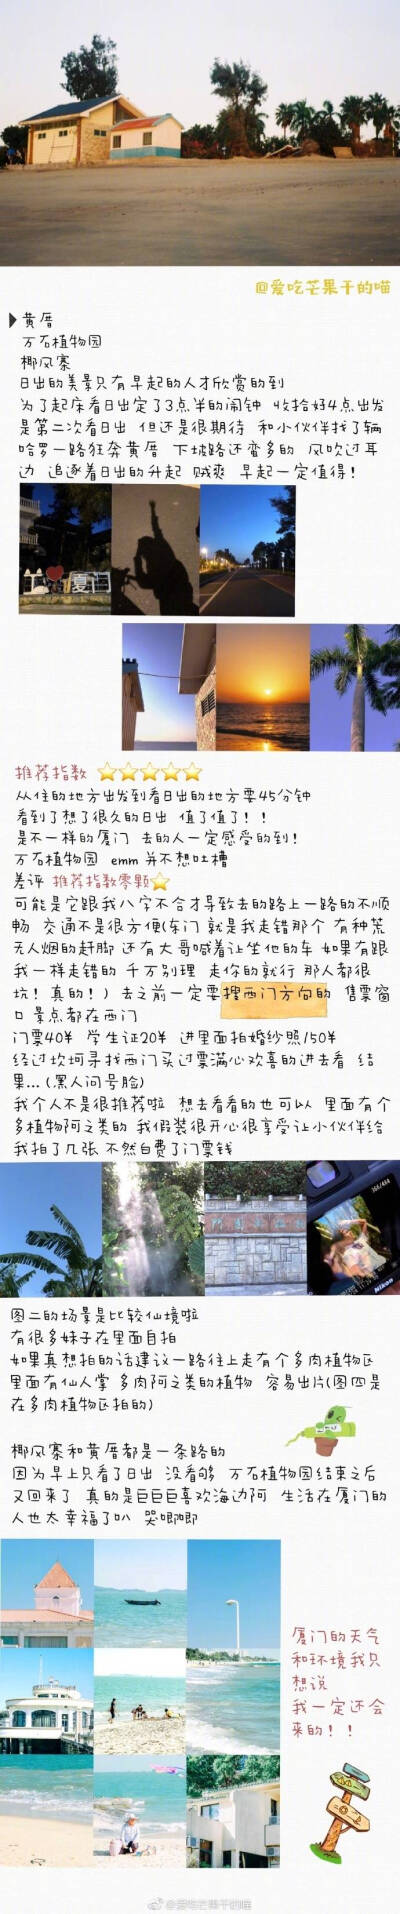 @爱吃芒果干的喵
黄厝
万石植物园
椰风寨
日出的美景只有早起的人才欣赏的到
为了起床看日出定了3点半的闹钟 收拾好4点出发
是第二次看日出 但还是很期待 和小伙伴找了辆
哈罗一路狂奔黄厝 下坡路还蛮多的 风吹过耳
边 追逐着日出的升起 贼爽 早起一定值得!
推荐指数
从住的地方出发到看日出的地方要45分钟
看到了想了很久的日出 值了值了!!
是不一样的厦门 去的人一定感受的到!
万石植物园 emm 并不想吐槽
差评 推荐指数零颗
可能是它跟我八字不合才导致去的路上一路的不顺
畅 交通不是很方便(东门 就是我走错那个 有种荒
无人烟的赶脚 还有大哥喊着让坐他的车 如果有跟
我一样走错的 千万别理 走你的就行 那人都很
坑! 真的!) 去之前一定要搜西门方向的 售票窗
口 景点都在西门
门票40¥ 学生证20¥ 进里面拍婚纱照150¥
经过坎坷寻找西门买过票满心欢喜的进去看 结
果... (黑人问号脸)
我个人不是很推荐啦 想去看看的也可以 里面有个
多植物阿之类的 我假装很开心很享受让小伙伴给
我拍了几张 不然白费了门票钱
368/484
Nikon
图二的场景是比较仙境啦
有很多妹子在里面自拍
如果真想拍的话建议一路往上走有个多肉植物区
里面有仙人掌 多肉阿之类的植物 容易出片(图四是
在多肉植物区拍的)
椰风寨和黄厝都是一条路的
因为早上只看了日出 没看够 万石植物园结束之后
又回来了 真的是巨巨巨喜欢海边阿 生活在厦门的
人也太幸福了叭 哭唧唧
厦门的天气
和环境我只
想说
我一定还会
来的!!
@爱吃芒果干的喵